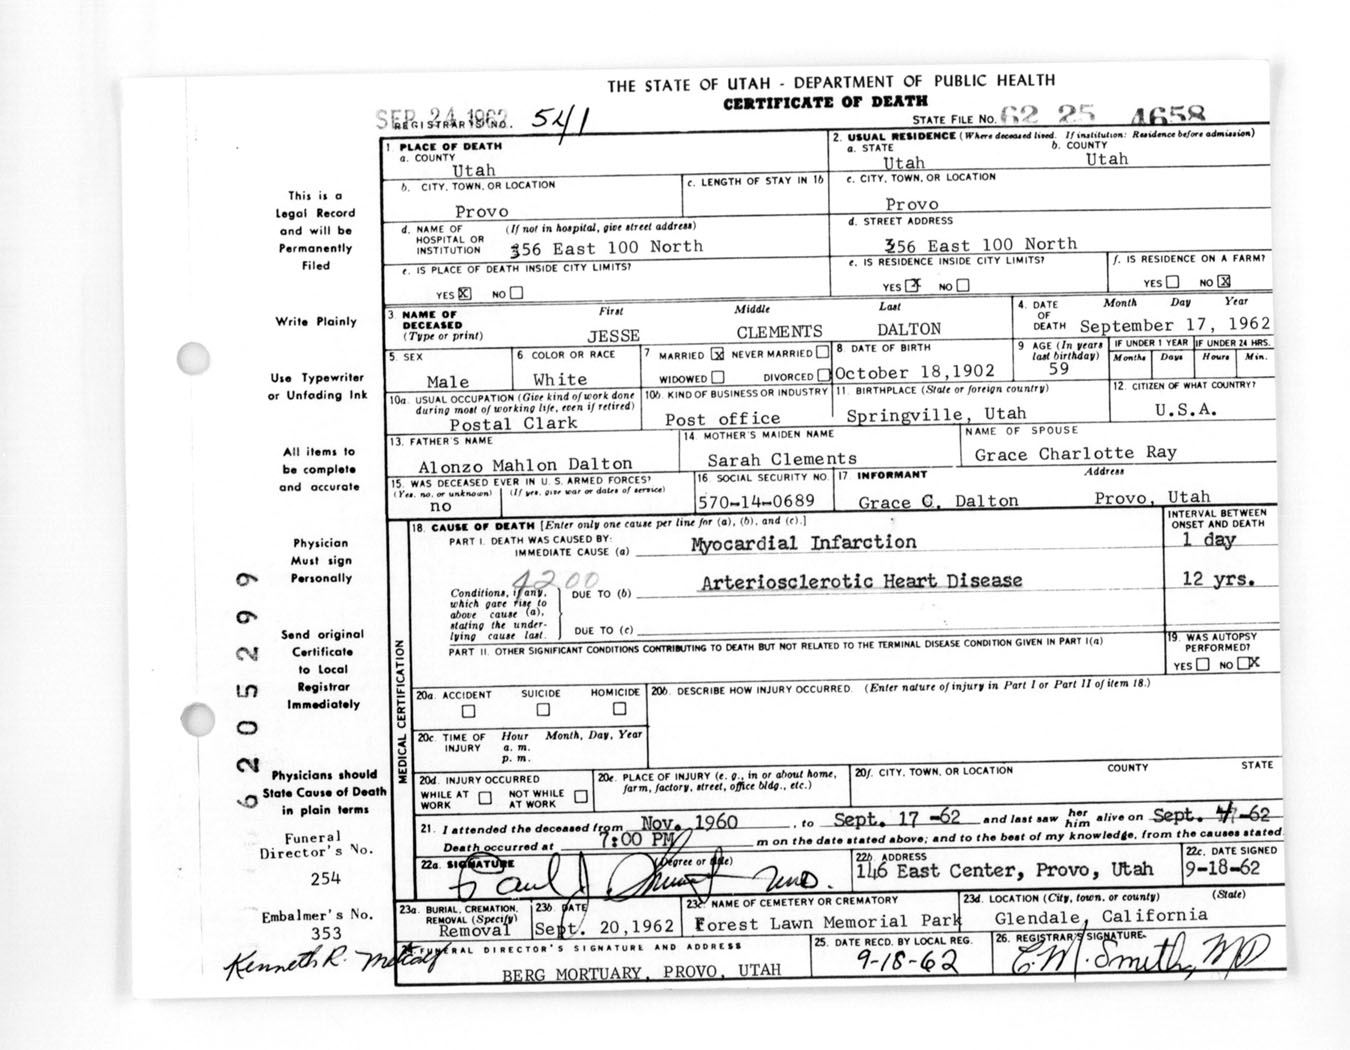 THE STATE OF UTAH - DEPARTMENT OF PUBLIC HEALTH
CERTIFICATE OF DEATH
SEP 24 1962
REGISTRAR'S NO. 541
STATE FILE NO. 62 25 4658
1. PLACE OF DEATH
a. COUNTY
Utah
2. USUAL RESIDENCE (Where deceased lived. If institution: Residence before admission)
a. STATE b. COUNTY
Utah Utah
b. CITY, TOWN, OR LOCATION
Provo
c. LENGTH OF STAY IN 1b
c. CITY, TOWN, OR LOCATION
Provo
d. NAME OF HOSPITAL OR INSTITUTION (If not in hospital, give street address)
356 East 100 North
d. STREET ADDRESS
356 East 100 North
e. IS PLACE OF DEATH INSIDE CITY LIMITS?
YES X NO
e. IS RESIDENCE INSIDE CITY LIMITS?
YES X NO
f. IS RESIDENCE ON A FARM?
YES NO X
3. NAME OF DECEASED (Type or print)
First Middle Last
JESSE CLEMENTS DALTON
4. DATE OF DEATH
Month Day Year
September 17, 1962
5. SEX
Male
6 COLOR OR RACE
White
7 MARRIED X NEVER MARRIED
WIDOWED DIVORCED
8 DATE OF BIRTH
October 18,1902
9 AGE (In years last birthday)
59
IF UNDER 1 YEAR IF UNDER 24 HRS.
Months Days Hours Min.
10a. USUAL OCCUPATION (Give kind of work done during most of working life, even if retired)
Postal Clark
10b. KIND OF BUSINESS OR INDUSTRY
Post office
11. BIRTHPLACE (State or foreign country)
Springville, Utah
12. CITIZEN OF WHAT COUNTRY?
U.S.A.
13. FATHER'S NAME
Alonzo Mahlon Dalton
14. MOTHER'S MAIDEN NAME
Sarah Clements
NAME OF SPOUSE
Grace Charlotte Ray
15. WAS DECEASED EVER IN U.S. ARMED FORCES?
(Yes, no, or unknown) (If yes, give war or dates of service)
no
16. SOCIAL SECURITY NO.
570-14-0689
17. INFORMANT Address
Grace C. Dalton Provo, Utah
18. CAUSE OF DEATH [Enter only one cause per line for (a), (b), and (c).]
INTERVAL BETWEEN ONSET AND DEATH
PART I. DEATH WAS CAUSED BY:
IMMEDIATE CAUSE (a) Myocardial Infarction 1 day
4200
Conditions, if any, which gave rise to above cause (a), stating the underlying cause last.
DUE TO (b) Arteriosclerotic Heart Disease 12 yrs.
DUE TO (c)
PART II. OTHER SIGNIFICANT CONDITIONS CONTRIBUTING TO DEATH BUT NOT RELATED TO THE TERMINAL DISEASE CONDITION GIVEN IN PART I(a)
19. WAS AUTOPSY PERFORMED?
YES NO X
MEDICAL CERTIFICATION
20a. ACCIDENT SUICIDE HOMICIDE
20b. DESCRIBE HOW INJURY OCCURRED. (Enter nature of injury in Part I or Part II of item 18.)
20c. TIME OF INJURY Hour Month, Day, Year
a. m.
p. m.
20d. INJURY OCCURRED
WHILE AT WORK NOT WHILE AT WORK
20e. PLACE OF INJURY (e. g., in or about home, farm, factory, street, office bldg., etc.)
20f. CITY, TOWN, OR LOCATION COUNTY STATE
21. I attended the deceased from Nov. 1960, to Sept. 17 -62 and last saw her him alive on Sept. -62
Death occurred at 7:00 PM m on the date stated above; and to the best of my knowledge, from the causes stated.
22a. SIGNATURE (Degree or title)
Paul J. M.D.
22b. ADDRESS
146 East Center, Provo, Utah
22c. DATE SIGNED
9-18-62
23a. BURIAL, CREMATION, REMOVAL (Specify)
Removal
23b. DATE
Sept. 20,1962
23c. NAME OF CEMETERY OR CREMATORY
Forest Lawn Memorial Park
23d. LOCATION (City, town, or county) (State)
Glendale, California
24. FUNERAL DIRECTOR'S SIGNATURE AND ADDRESS
Kenneth R. Metcalf
BERG MORTUARY, PROVO, UTAH
25. DATE RECD. BY LOCAL REG.
9-18-62
26. REGISTRAR'S SIGNATURE
E.M. Smith, MD
This is a
Legal Record
and will be
Permanently
Filed
Write Plainly
Use Typewriter
or Unfading Ink
All items to
be complete
and accurate
Physician
Must sign
Personally
Send original
Certificate
to Local
Registrar
Immediately
Physicians should
State Cause of Death
in plain terms
Funeral
Director's No.
254
Embalmer's No.
353
6205299